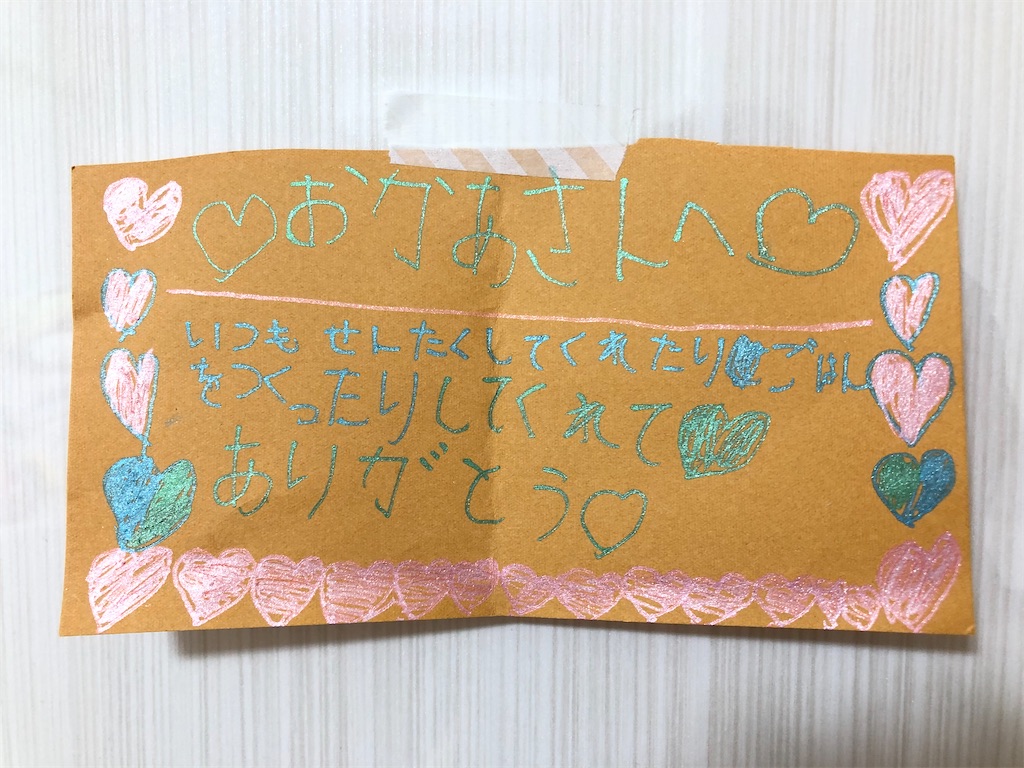 ♡おかあさんへ♡
いつも せんたくしてくれたりごはん
をつくったりしてくれて♥
ありがとう♡